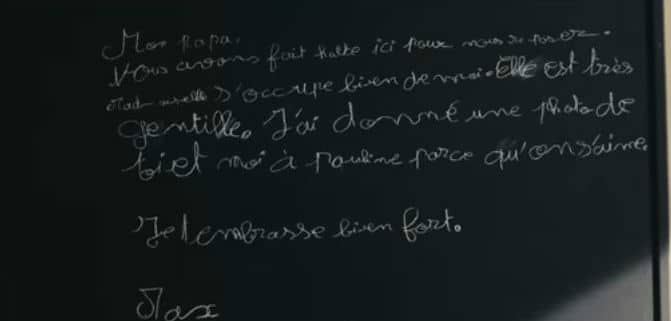 Mon Papa,
Nous avons fait halte ici pour nous reposer.
s'occupe bien de moi. Elle est très
gentille. J'ai donné une photo de
toi et moi à Pauline parce qu'on s'aime.
Je t'embrasse bien fort.
Max